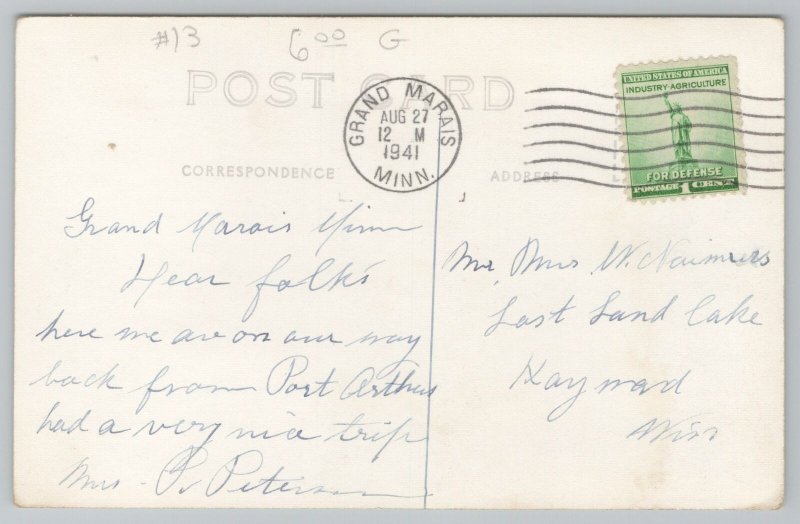 #13 6 00 G
POST CARD
GRAND MARAIS
AUG 27
12 M
1941
MINN.
UNITED STATES OF AMERICA
INDUSTRY-AGRICULTURE
FOR DEFENSE
POSTAGE 1 CENT
CORRESPONDENCE
ADDRESS
Grand Marais Minn
Dear folks
here we are on our way
back from Port Arthur
had a very nice trip
Mrs - P. Peterson
Mr. Mrs W.
Lost Land Lake
Hayward
Wisc